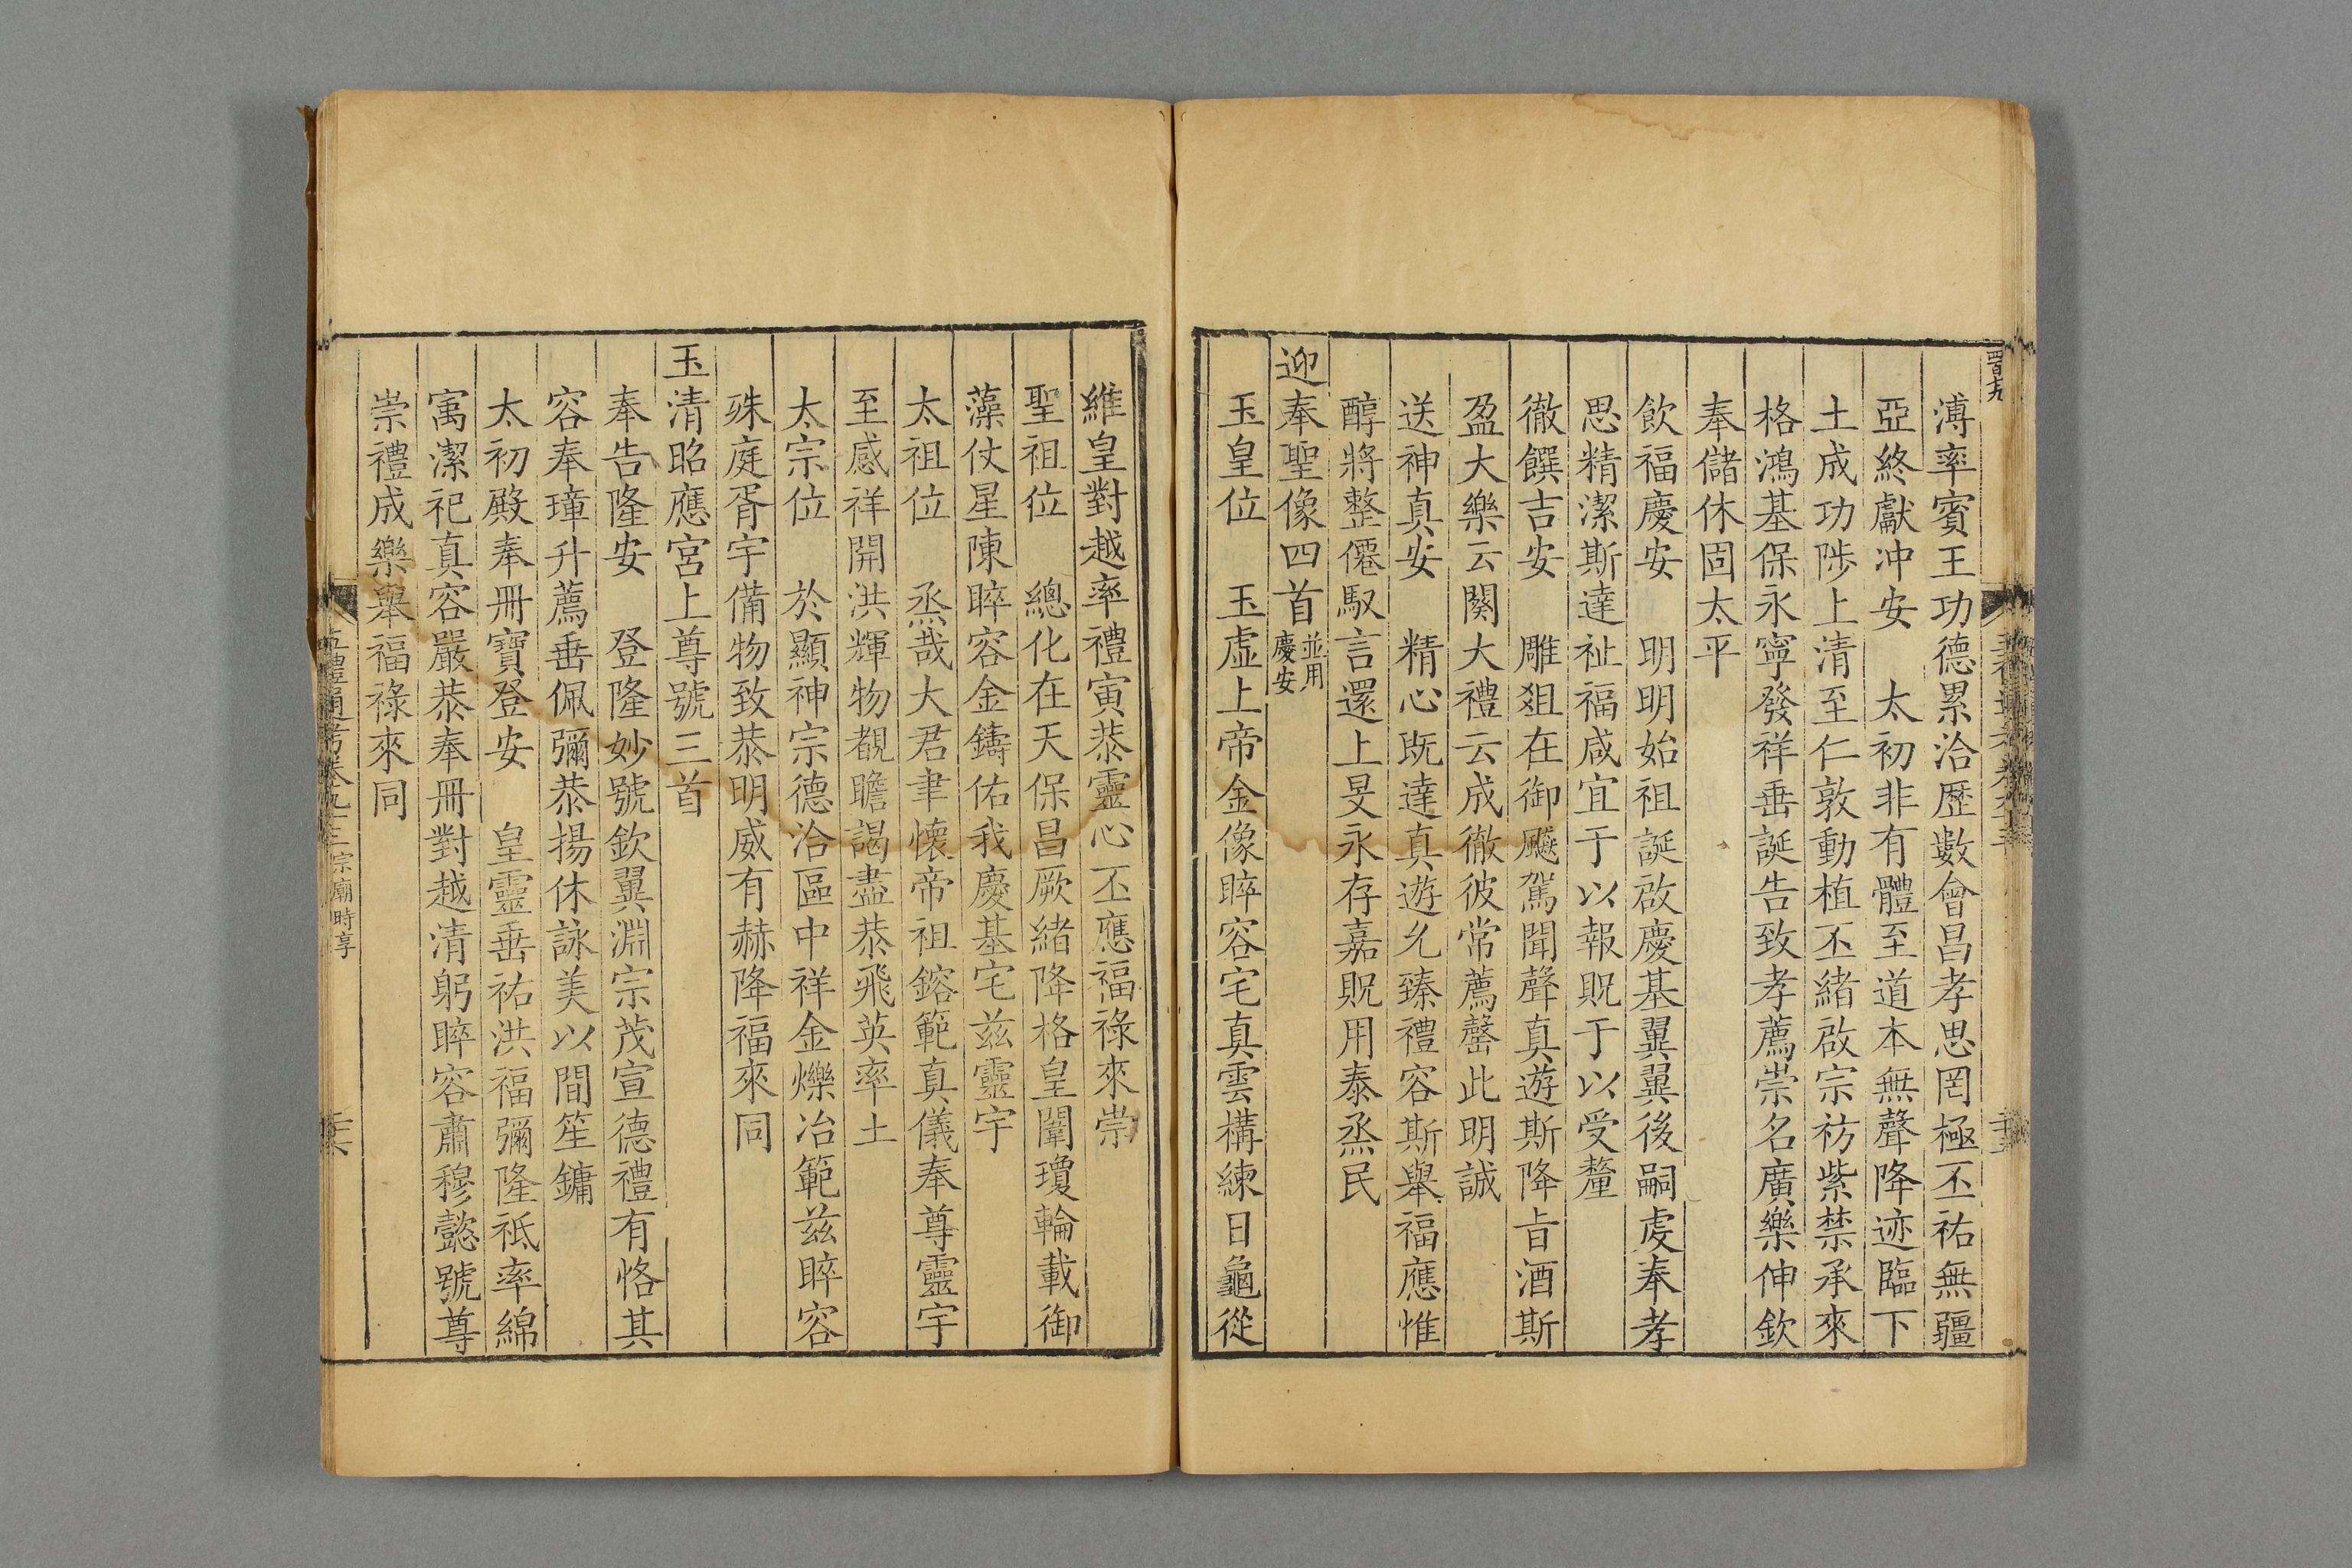 溥率賓王功德累洽歷數會昌孝思罔極丕祐無疆
亞終獻冲安　太初非有體至道本無聲降迹臨下
土成功陟上清至仁敦動植丕緒啟宗祊紫禁承來
格鴻基保永寧發祥垂誕告致孝薦崇名廣樂伸欽
奉儲休固太平
飲福慶安　明明始祖誕啟慶基翼翼後嗣虔奉孝
思精潔斯達祉福咸宜于以報貺于以受釐
徹饌吉安　雕俎在御飈駕聞聲真遊斯降旨酒斯
盈大樂云闋大禮云成徹彼常薦罄此明誠
送神真安　精心既達真遊允臻禮容斯舉福應惟
醇將整僊馭言還上旻永存嘉貺用泰烝民
迎奉聖像四首並用慶安
玉皇位　玉虛上帝金像睟容宅真雲構練日龜從
維皇對越率禮寅恭靈心丕應福祿來崇
聖祖位　總化在天保昌厥緒降格皇闈瓊輪載御
藻仗星陳睟容金鑄佑我慶基宅兹靈宇
太祖位　烝哉大君聿懷帝祖鎔範真儀奉尊靈宇
至感祥開洪輝物覩瞻謁盡恭飛英率土
太宗位　於顯神宗德洽區中祥金爍冶範兹睟容
殊庭胥宇備物致恭明威有赫降福來同
玉清昭應宮上尊號三首
奉告隆安　登隆妙號欽翼淵宗茂宣德禮有恪其
容奉璋升薦垂佩彌恭揚休詠美以間笙鏞
太初殿奉冊寶登安　皇靈垂祐洪福彌隆祗率綿
寓潔祀真容嚴恭奉冊對越清躬睟容肅穆懿號尊
崇禮成樂舉福祿來同
五禮通考卷九十三宗廟時享